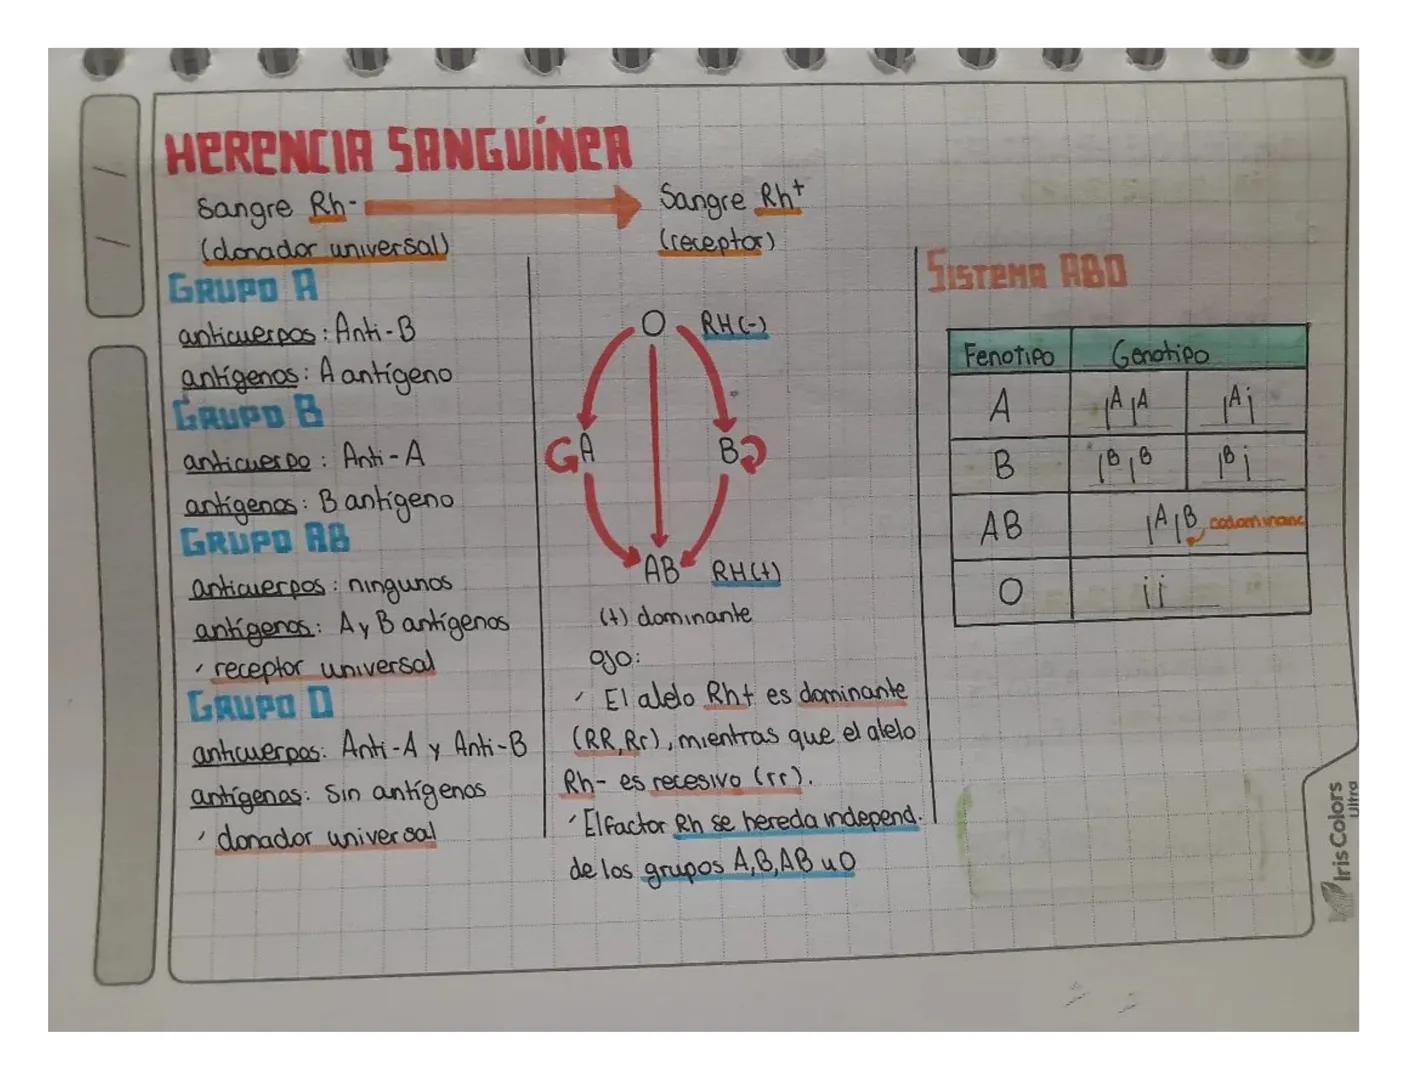 HERENCIA SANGUÍNEA
Sangre Rh-
(donador universal)
Sangre Rh+
(receptor)
GRUPO A
anticuerpos: Anti-B
antígenos: A antígeno
GRUPO B
anticuerpo: Anti-A
antígenos: B antígeno
GRUPO AB
anticuerpos: ningunos
antígenos: A y B antígenos
receptor universal
GRUPO O
anticuerpos: Anti-A y Anti-B
antígenos: Sin antígenos
donador universal
O RH(-)
A B
AB RH(+)
(+) dominante
ojo:
El alelo Rh+ es dominante
(RR, Rr), mientras que el alelo
Rh- es recesivo (rr).
El factor Rh se hereda independ.
de los grupos A, B, AB u O
SISTEMA ABO
Fenotipo Genotipo
A IᴬIᴬ Iᴬi
B IᴮIᴮ Iᴮi
AB IᴬIᴮ codominanc
O ii
Iris Colors
Ultra